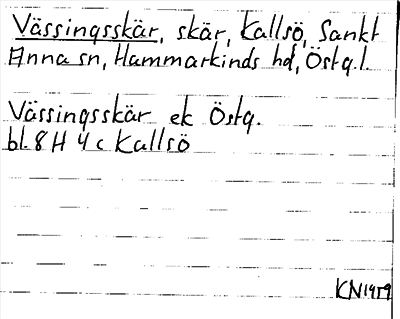 Vässingsskär, skär, Kallsö, Sankt
Anna sn, Hammarkinds hd, Östg.l.
Vässingsskär ek Östg.
bl. 8 H 4 c Kallsö
KN 1959